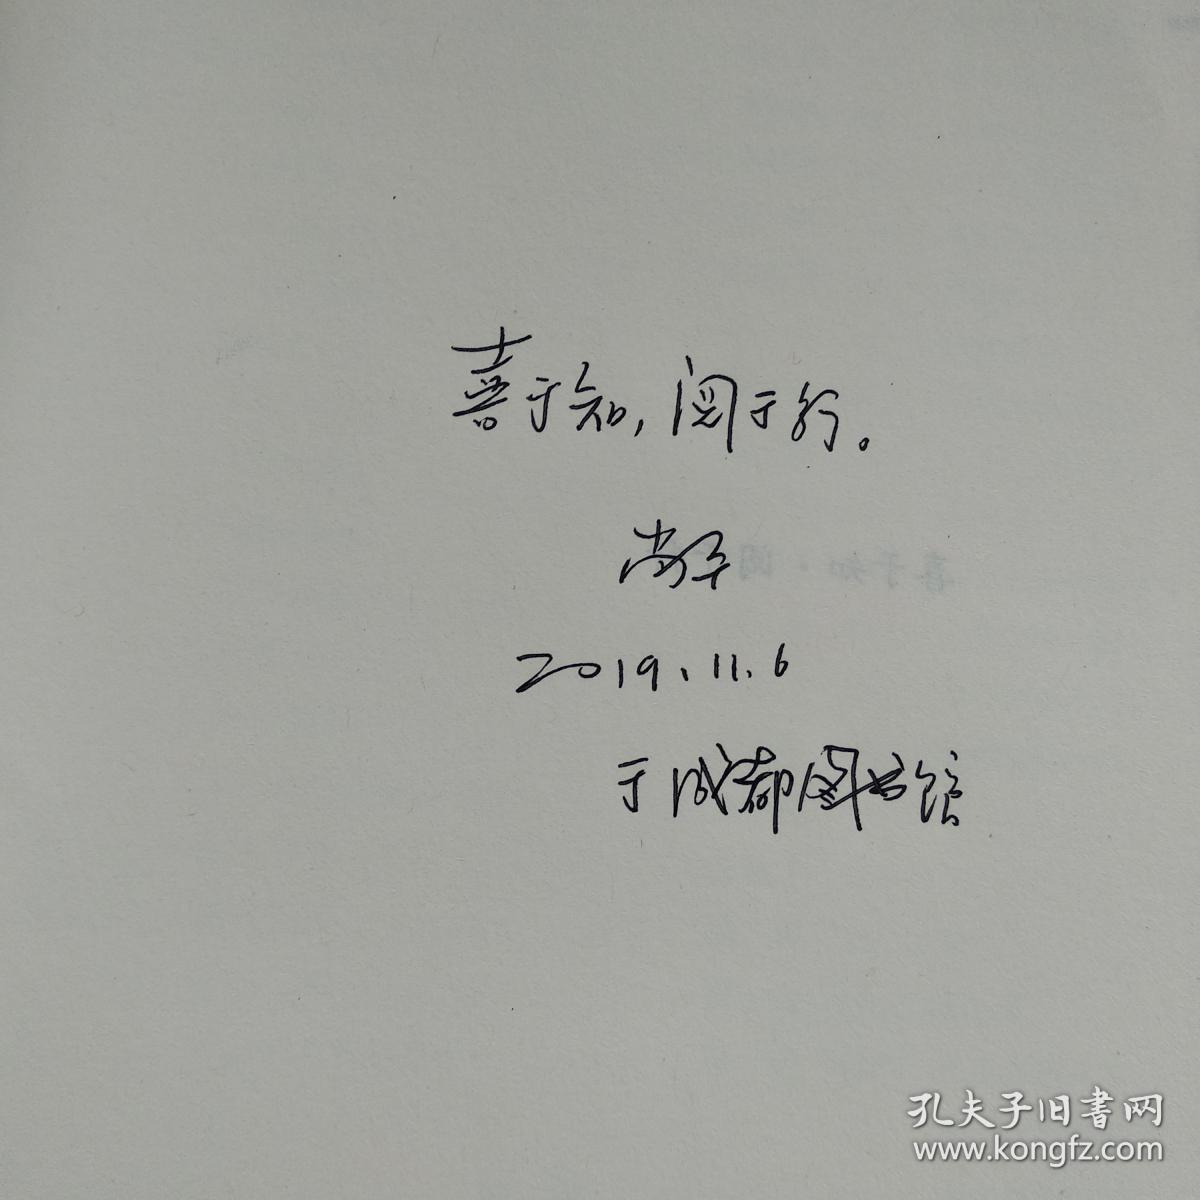 喜于知，阅于行。
2019.11.6
于成都图书馆
喜于知·阅
孔夫子旧书网
www.kongfz.com